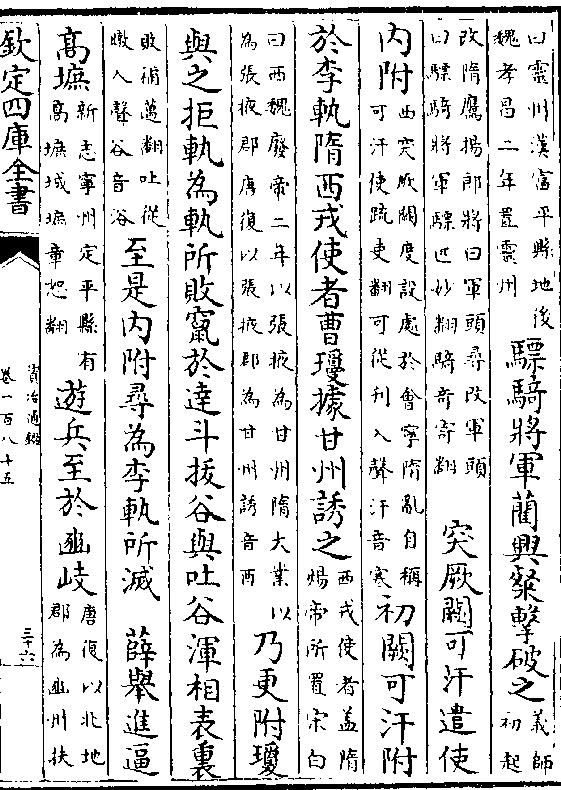 曰靈州漢富平縣地後
魏孝昌二年置靈州
驃騎將軍藺興粲擊破之
義師
初起
改隋鷹揚郎將曰軍頭尋改軍頭
曰驃騎將軍驃匹妙翻騎奇寄翻
突厥闕可汗遣使
内附
西突厥闕度設處於會寧隋亂自稱
可汗使疏吏翻可從刋入聲汗音寒
初闕可汗附
於李軌隋西戎使者曹瓊據甘州誘之
西戎使者盖隋
煬帝所置宋白
曰西魏廢帝二年以張掖為甘州隋大業以
為張掖郡唐復以張掖郡為甘州誘音酉
乃更附瓊
與之拒軌為軌所敗竄於達斗拔谷與吐谷渾相表裏
敗補邁翻吐從
暾入聲谷音浴
至是内附尋為李軌所滅
薛舉進逼
高墌
新志寧州定平縣有
高墌城墌章恕翻
遊兵至於豳岐
唐復以北地
郡為豳州扶
欽定四庫全書
資治通鑑
卷一百八十五
三十六